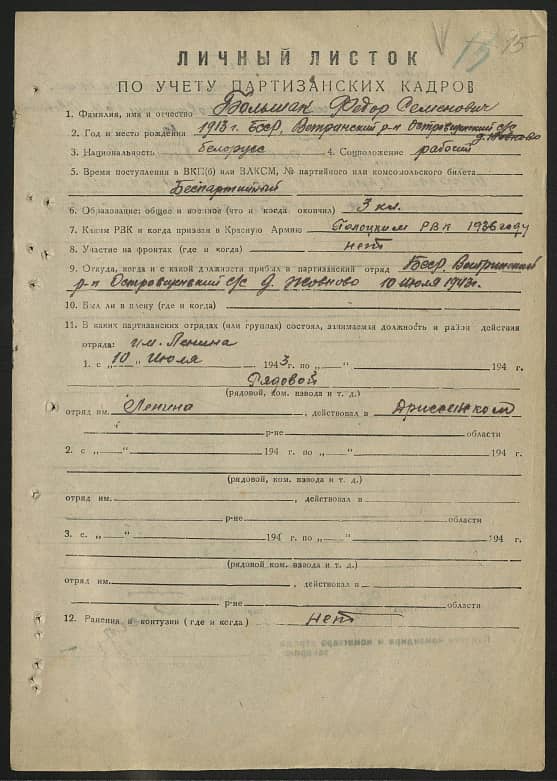 15 15
ЛИЧНЫЙ ЛИСТОК
ПО УЧЕТУ ПАРТИЗАНСКИХ КАДРОВ
1. Фамилия, имя и отчество Большак Федор Семенович
2. Год и место рождения 1913 г. БССР, Ветринский р-н Островщинский с/с
д. Жовново
3. Национальность белорусс 4. Соцположение рабочий
5. Время поступления в ВКП(б) или ВЛКСМ, № партийного или комсомольского билета
Беспартийный
6. Образование: общее и военное (что и когда окончил) 3 кл.
7. Каким РВК и когда призван в Красную Армию Полоцким РВК 1936 году
8. Участие на фронтах (где и когда) нет
9. Откуда, когда и с какой должности прибыл в партизанский отряд БССР, Ветринский
р-н Островщинский с/с д. Жовново 10 июля 1943 г.
10. Был ли в плену (где и когда)
11. В каких партизанских отрядах (или группах) состоял, занимаемая должность и район действия
отряда: им. Ленина
1. с „10" Июля 1943 г. по „ " 194 г.
Рядовой
(рядовой, ком. взвода и т. д.)
отряд им. Ленина, действовал в Дриссенском
р-не области
2. с „ " 194 г. по „ " 194 г.
(рядовой, ком. взвода и т. д.)
отряд им. , действовал в
р-не области
3. с. „ " 194 г. по „ " 194 г.
(рядовой ком. взвода и т. д.)
отряд им. , действовал в
р-не области
12. Ранения и контузии (где и когда) нет